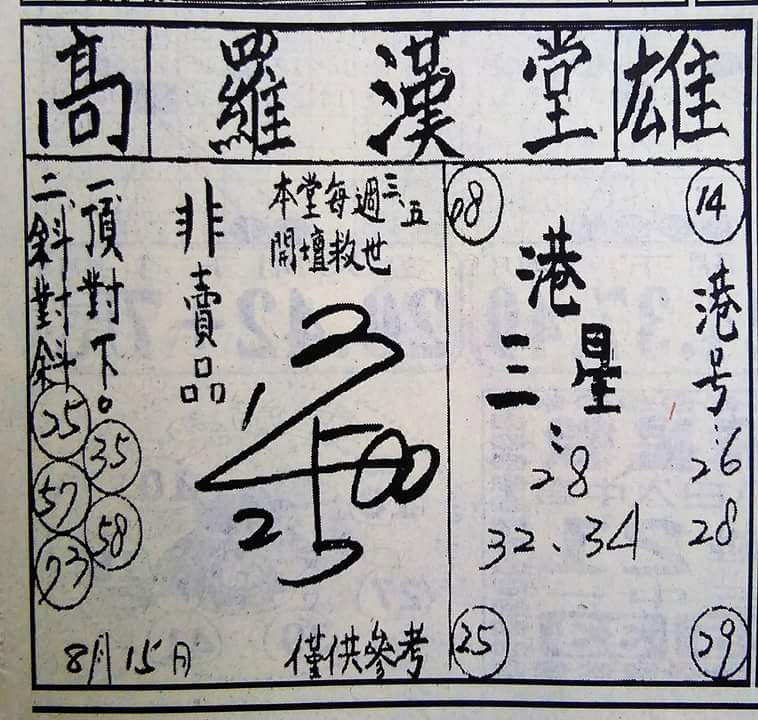 高 羅漢堂 雄
14
港号:26
28
29
08
港
三星
:28
32、34
25
本堂每週三、五
開壇救世
非賣品
1
2
僅供參考
一頂對下。
35
58
二斜對斜
25
57
8月15日